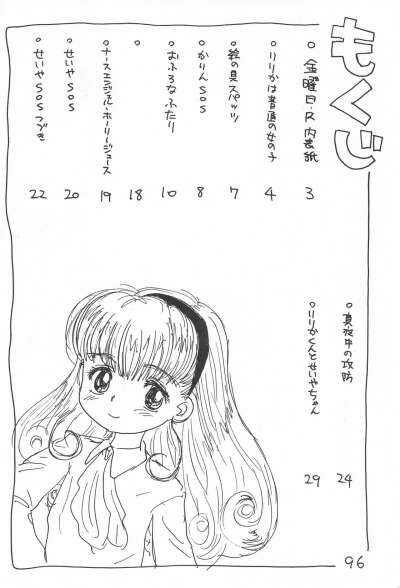 もくじ
○ 金曜日・R内表紙 3
○ りりかは普通の女の子 4
○ 絵の具スパッツ 7
○ かりんSOS 8
○ おふろなふたり 10
○ 18
○ ナースエンジェル・ホーリージュース 19
○ せいやSOS 20
○ せいやSOSつづき 22
○ 真夜中の攻防 24
○ りりかくんとせいやちゃん 29
96